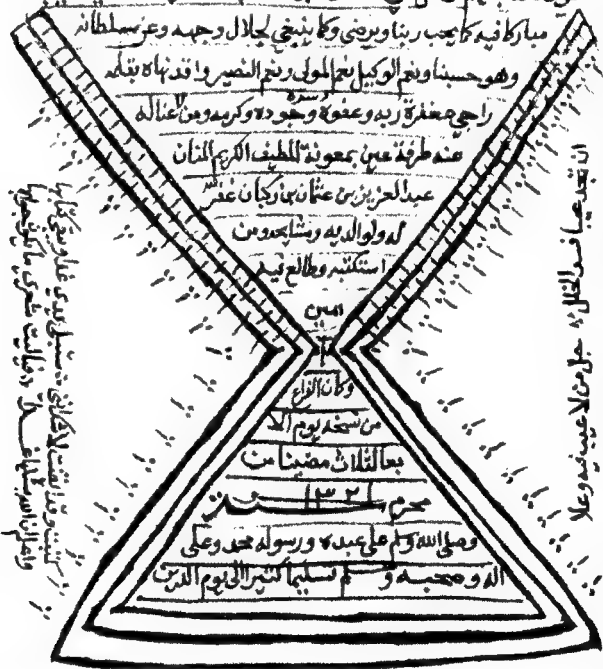 مباركا فيه كما يحب ربنا ويرضى وكما ينبغي لجلال وجهه وعز سلطانه
وهو حسبنا ونعم الوكيل نعم المولى ونعم النصير وقد نهاه بقلمه
راجي مغفرة ربه وعفوه وستره وجوده وكرمه ومن لا غنا له
عنه طرفة عين بمعونة اللطيف الكريم المنان
عبد العزيز بن عثمان بن ركبان غفر الله
له ولوالديه ومشايخه ومن
استكتبه وطالع فيه
امين
وكان الفراغ
من نسخه يوم الا
ربعا لثلاث مضين من
محرم سنة ١٣٢١
وصلى الله وسلم على عبده ورسوله محمد وعلى
اله وصحبه وسلم تسليما كثيرا الى يوم الدين
ان تجد عيبا فسد الخللا جل من لا عيب فيه وعلا
كتبت وقد ايقنت